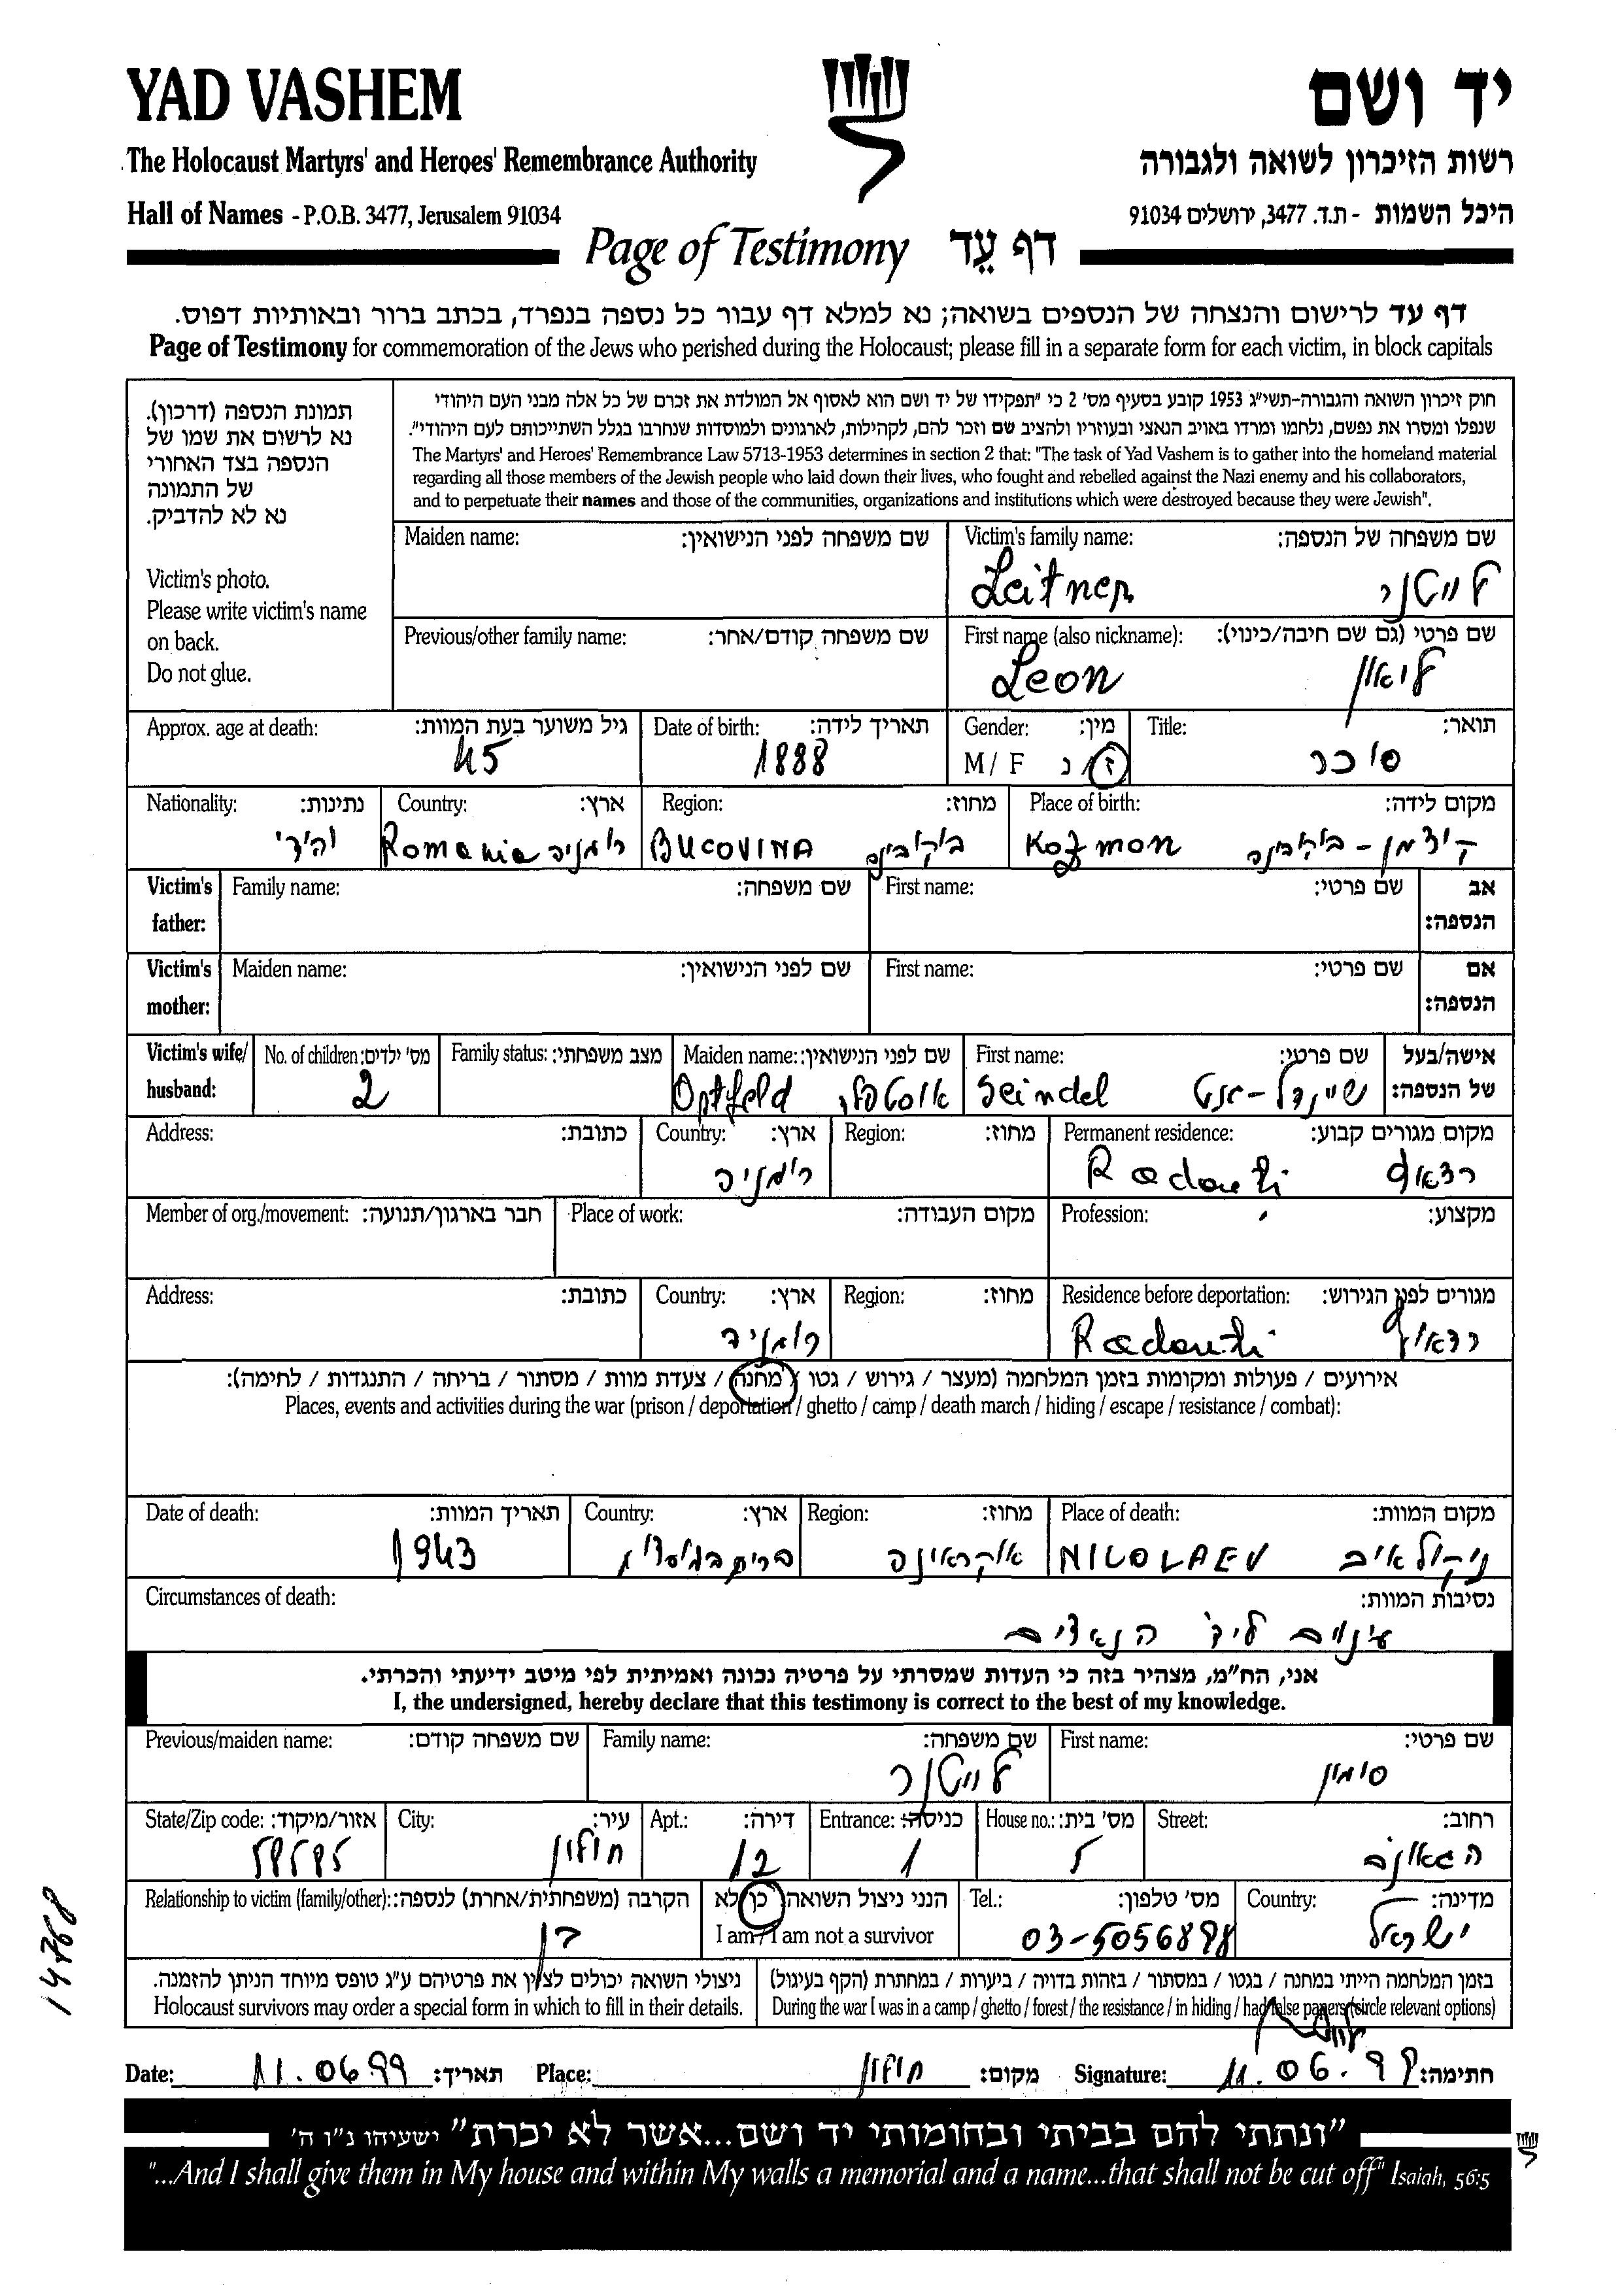 YAD VASHEM
יד ושם
The Holocaust Martyrs' and Heroes' Remembrance Authority
רשות הזיכרון לשואה ולגבורה
Hall of Names - P.O.B. 3477, Jerusalem 91034
היכל השמות - ת.ד. 3477, ירושלים 91034
Page of Testimony דף עֵד
דף עד לרישום והנצחה של הנספים בשואה; נא למלא דף עבור כל נספה בנפרד, בכתב ברור ובאותיות דפוס.
Page of Testimony for commemoration of the Jews who perished during the Holocaust; please fill in a separate form for each victim, in block capitals
תמונת הנספה (דרכון).
נא לרשום את שמו של
הנספה בצד האחורי
של התמונה
נא לא להדביק.
Victim's photo.
Please write victim's name
on back.
Do not glue.
חוק זיכרון השואה והגבורה-תשי"ג 1953 קובע בסעיף מס' 2 כי "תפקידו של יד ושם הוא לאסוף אל המולדת את זכרם של כל אלה מבני העם היהודי
שנפלו ומסרו את נפשם, נלחמו ומרדו באויב הנאצי ובעוזריו ולהציב שם וזכר להם, לקהילות, לארגונים ולמוסדות שנחרבו בגלל השתייכותם לעם היהודי".
The Martyrs' and Heroes' Remembrance Law 5713-1953 determines in section 2 that: "The task of Yad Vashem is to gather into the homeland material
regarding all those members of the Jewish people who laid down their lives, who fought and rebelled against the Nazi enemy and his collaborators,
and to perpetuate their names and those of the communities, organizations and institutions which were destroyed because they were Jewish".
Maiden name: שם משפחה לפני הנישואין:
Victim's family name: שם משפחה של הנספה:
Leitner לייטנר
Previous/other family name: שם משפחה קודם/אחר:
First name (also nickname): שם פרטי (גם שם חיבה/כינוי):
Leon ליאון
Approx. age at death: גיל משוער בעת המוות: Date of birth: תאריך לידה: Gender: מין: Title: תואר:
45 1888 M / F ז / נ סוכר
Nationality: נתינות: Country: ארץ: Region: מחוז: Place of birth: מקום לידה:
יהודי Romania רומניה BUCOVINA בוקובינה Kozmon קוצמן - בוקובינה
Victim's father: Family name: שם משפחה: First name: שם פרטי: אב הנספה:
Victim's mother: Maiden name: שם לפני הנישואין: First name: שם פרטי: אם הנספה:
Victim's wife/husband: No. of children: מס' ילדים: Family status: מצב משפחתי: Maiden name: שם לפני הנישואין: First name: שם פרטי: אישה/בעל של הנספה:
2 Optfeld Seindel שיינדל
Address: כתובת: Country: ארץ: Region: מחוז: Permanent residence: מקום מגורים קבוע:
רומניה Radauti רדאוץ
Member of org./movement: חבר בארגון/תנועה: Place of work: מקום העבודה: Profession: מקצוע:
Address: כתובת: Country: ארץ: Region: מחוז: Residence before deportation: מגורים לפני הגירוש:
רומניה Radauti רדאוץ
אירועים / פעולות ומקומות בזמן המלחמה (מעצר / גירוש / גטו / מחנה / צעדת מוות / מסתור / בריחה / התנגדות / לחימה):
Places, events and activities during the war (prison / deportation / ghetto / camp / death march / hiding / escape / resistance / combat):
Date of death: תאריך המוות: Country: ארץ: Region: מחוז: Place of death: מקום המוות:
1943 אוקראינה NICOLAEV ניקולאייב
Circumstances of death: נסיבות המוות:
עינויים הנאצים
אני, הח"מ, מצהיר בזה כי העדות שמסרתי על פרטיה נכונה ואמיתית לפי מיטב ידיעתי והכרתי.
I, the undersigned, hereby declare that this testimony is correct to the best of my knowledge.
Previous/maiden name: שם משפחה קודם: Family name: שם משפחה: First name: שם פרטי:
לייטנר סימון
State/Zip code: אזור/מיקוד: City: עיר: Apt.: דירה: Entrance: כניסה: House no.: מס' בית: Street: רחוב:
חולון 12 1 5
Relationship to victim (family/other): הקרבה (משפחתית/אחרת) לנספה: הנני ניצול השואה כן לא Tel.: מס' טלפון: Country: מדינה:
I am / I am not a survivor
בן 03-5056898 ישראל
ניצולי השואה יכולים לציין את פרטיהם ע"ג טופס מיוחד הניתן להזמנה.
Holocaust survivors may order a special form in which to fill in their details.
בזמן המלחמה הייתי במחנה / בגטו / במסתור / בזהות בדויה / ביערות / במחתרת (הקף בעיגול)
During the war I was in a camp / ghetto / forest / the resistance / in hiding / had false papers (circle relevant options)
Date: 11.06.99 תאריך: Place: חולון מקום: Signature: 11.06.99 חתימה:
"ונתתי להם בביתי ובחומותי יד ושם...אשר לא יכרת" ישעיהו נ"ו ה'
"...And I shall give them in My house and within My walls a memorial and a name...that shall not be cut off" Isaiah, 56:5